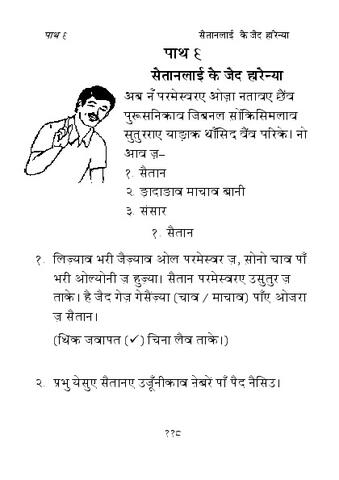 पाथ ६
सैतानलाई कै जैद हारेन्या
पाथ ६
सैतानलाई कै जैद हारेन्या
अब नँ परमेस्वरए ओज़ा नतावए छैंव
पुरूसनिकाव जिबनल सोंकिसिमलाव
सुतुरराए याज़ाक थाँसिद वैंव परिके। नो
आव ज़–
१. सैतान
२. ङादाङाव माचाव बानी
३. संसार
१. सैतान
१. लिज़्याव भरी जैज़्याव ओल परमेस्वर ज़, सोनो चाव पाँ
भरी ओल्योनी ज़ हुज़्या। सैतान परमेस्वरए उसुतुर ज़
ताके। है जैद गेज़ गेसैंज़्या (चाव / माचाव) पाँए ओजरा
ज़ सैतान।
(थिक जवापत (✓) चिना लैव ताके।)
२. प्रभु येसुए सैतानए उर्जूनीकाव ऩेबरें पाँ पैद नैसिउ।
११८